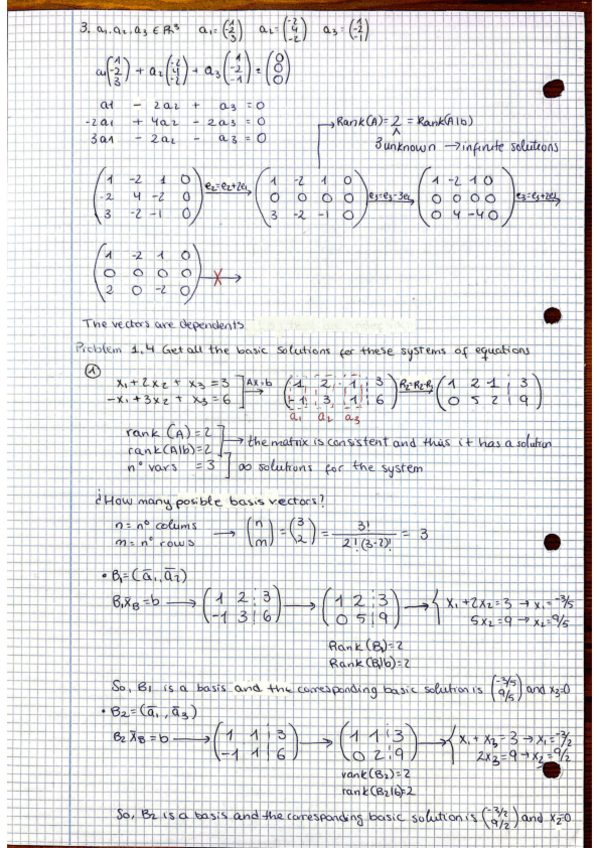 3. a₁, a₂, a₃ ∈ ℝ³ a₁=(1 -2 3) a₂=(-2 4 -2) a₃=(1 -2 -1)
a₁(1 -2 3) + a₂(-2 4 -2) + a₃(1 -2 -1) = (0 0 0)
a1 - 2a2 + a3 = 0
-2a1 + 4a2 - 2a3 = 0
3a1 - 2a2 - a3 = 0
Rank(A) = 2 = Rank(A|b)
3 unknown → infinite solutions
1 -2 1 0 e₂=e₂+2e₁ 1 -2 1 0 e₃=e₃-3e₁ 1 -2 1 0 e₃=e₃+2e₁
-2 4 -2 0 0 0 0 0 0 0 0 0
3 -2 -1 0 3 -2 -1 0 0 4 -4 0
1 -2 1 0
0 0 0 0 X→
2 0 -2 0
The vectors are dependents
Problem 1.4 Get all the basic solutions for these systems of equations
①
x₁+2x₂+x₃=3 Ax=b 1 2 1 3 R₂=R₂+R₁ 1 2 1 3
-x₁+3x₂+x₃=6 -1 3 1 6 0 5 2 9
a₁ a₂ a₃
rank (A)=2
rank(A|b)=2 → the matrix is consistent and thus it has a solution
nº vars = 3 ∞ solutions for the system
¿How many posible basis vectors?
n = nº colums
m = nº rows → (n m) = (3 2) = 3! / 2!(3-2)! = 3
• B₁=(a̅₁,a̅₂)
B₁x̅B=b → 1 2 3 → 1 2 3 → x₁+2x₂=3 → x₁=-3/5
-1 3 6 0 5 9 5x₂=9 → x₂=9/5
Rank(B₁)=2
Rank(B₁|b)=2
So, B1 is a basis and the corresponding basic solution is (-3/5 9/5) and x₃=0
• B₂=(a̅₁,a̅₃)
B₂x̅B=b → 1 1 3 → 1 1 3 → x₁+x₃=3 → x₁=-3/2
-1 1 6 0 2 9 2x₃=9 → x₂=9/2
rank(B₂)=2
rank(B₂|b)=2
So, B2 is a basis and the corresponding basic solution is (-3/2 9/2) and x₂=0